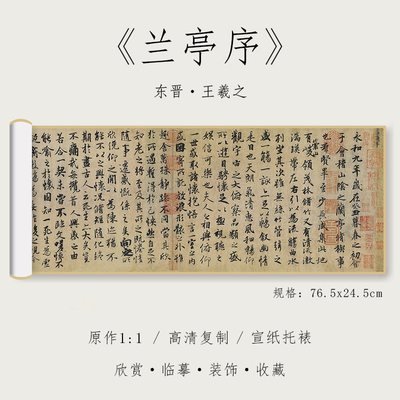 《兰亭序》
东晋·王羲之
永和九年歲在癸丑暮春之初會
于會稽山陰之蘭亭脩稧事
也群賢畢至少長咸集此地
有崇山峻領茂林脩竹又有清流激
湍暎帶左右引以為流觴曲水
列坐其次雖無絲竹管弦之
盛一觴一詠亦足以暢敘幽情
是日也天朗氣清惠風和暢仰
觀宇宙之大俯察品類之盛
所以遊目騁懷足以極視聽之
娛信可樂也夫人之相與俯仰
一世或取諸懷抱悟言一室之內
或因寄所託放浪形骸之外雖
趣舍萬殊靜躁不同當其欣
於所遇暫得於己怏然自足不
知老之將至及其所之既惓情
隨事遷感慨係之矣向之所
欣俛仰之間以為陳迹猶不
能不以之興懷況脩短隨化終
期於盡古人云死生亦大矣豈
不痛哉每攬昔人興感之由
若合一契未嘗不臨文嗟悼不
能喻之於懷固知一死生為虛
规格：76.5x24.5cm
原作1:1 / 高清复制 / 宣纸托裱
欣赏·临摹·装饰·收藏